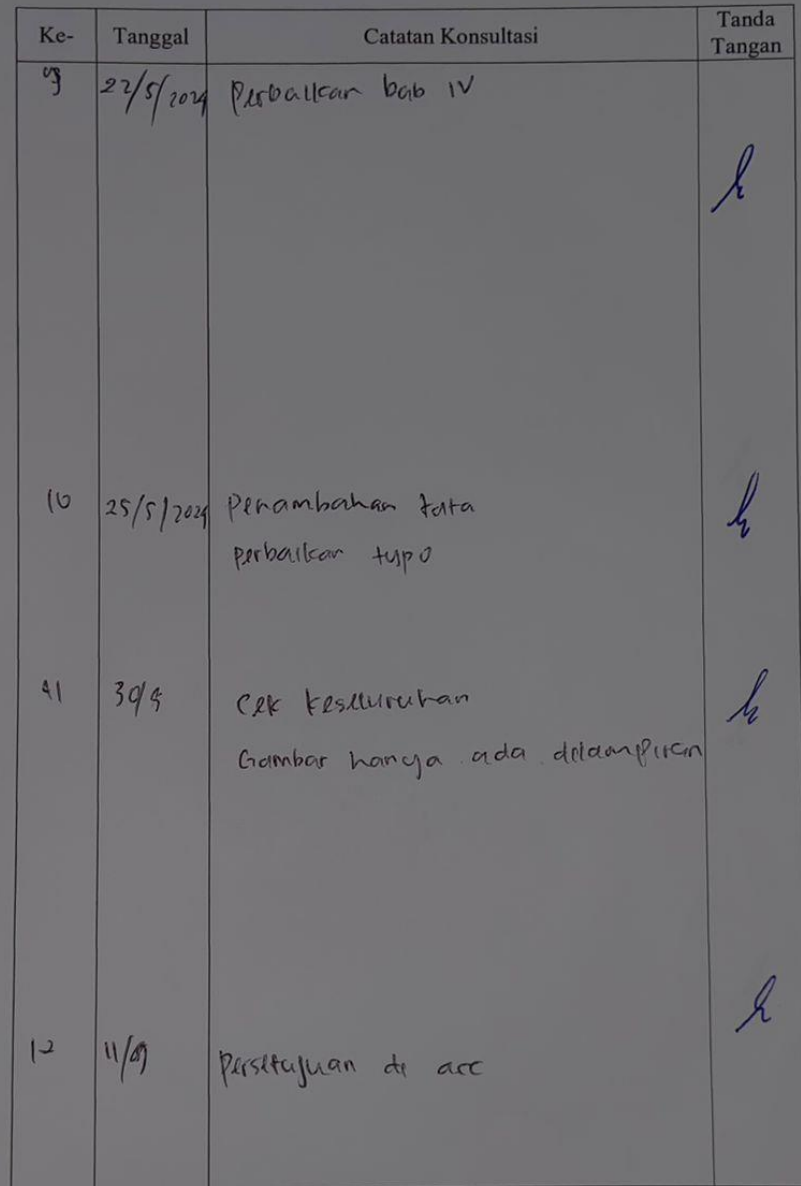 Ke- Tanggal Catatan Konsultasi Tanda Tangan
9 22/5/2024 Perbaikan bab IV
10 25/5/2024 Penambahan
perbaikan typo
11 30/5 Cek keseluruhan
Gambar hanya ada dilampiran
12 Persetujuan di acc